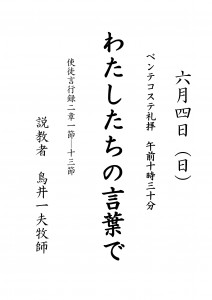 六月四日（日）
ペンテコステ礼拝　午前十時三十分
わたしたちの言葉で
使徒言行録二章一節―十三節
説教者　鳥井一夫牧師